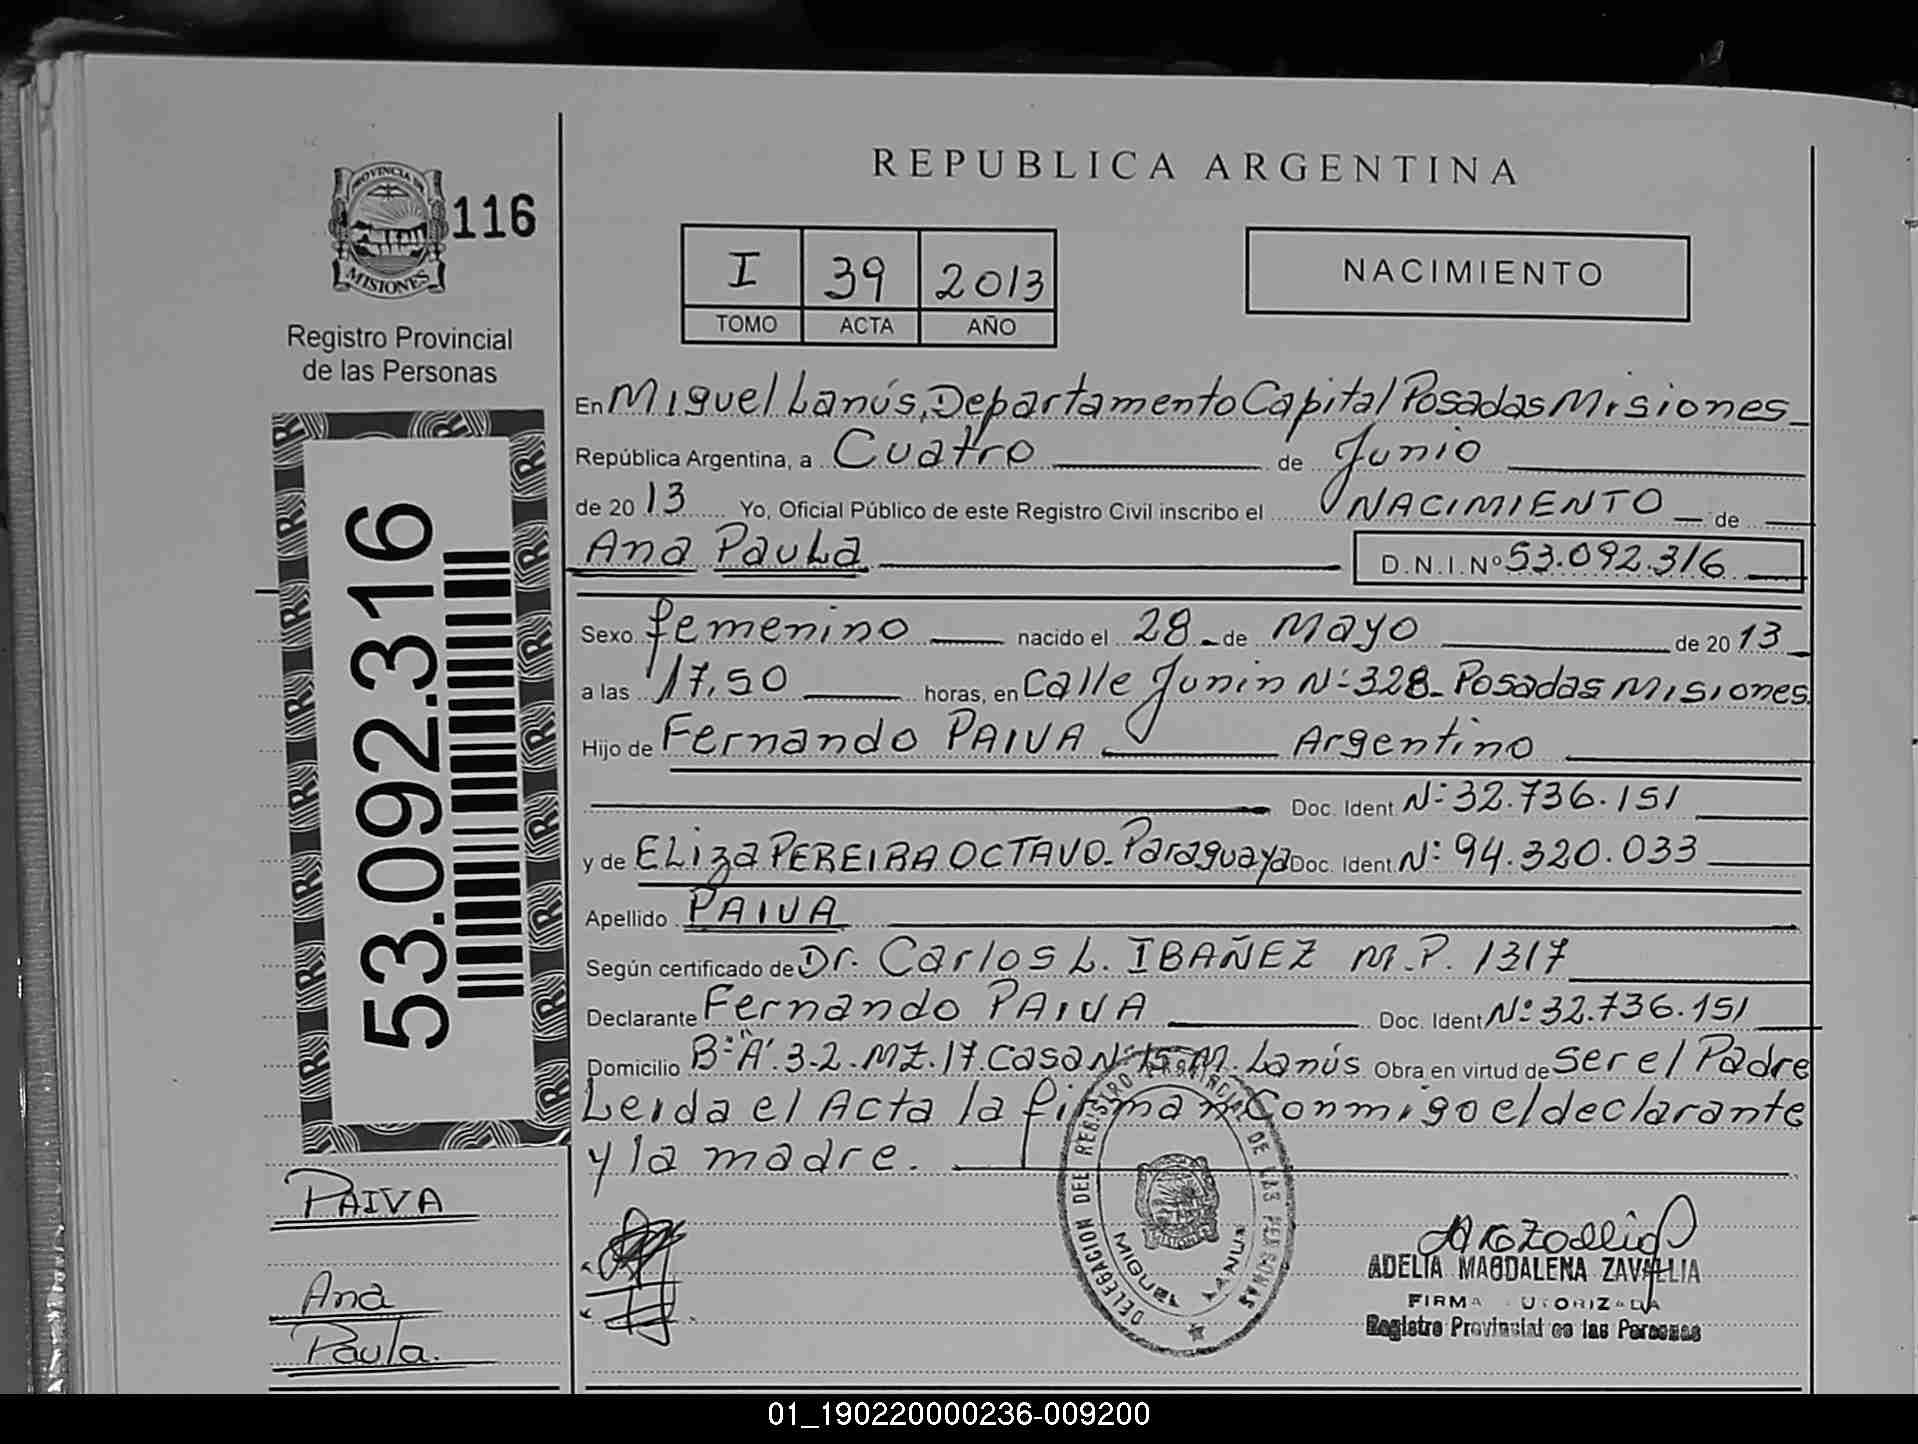 REPUBLICA ARGENTINA
PROVINCIA DE
MISIONES
116
Registro Provincial
de las Personas
I 39 2013
TOMO ACTA AÑO
NACIMIENTO
En Miguel Lanús, Departamento Capital Posadas Misiones
República Argentina, a Cuatro de Junio
de 2013 Yo, Oficial Público de este Registro Civil inscribo el NACIMIENTO de
Ana Paula D.N.I.Nº 53.092.316
Sexo femenino nacido el 28 de Mayo de 2013
a las 17,50 horas, en Calle Junin Nº 328- Posadas Misiones
Hijo de Fernando PAIVA Argentino
Doc. Ident. Nº 32.736.151
y de ELiza PEREIRA OCTAVO- Paraguaya Doc. Ident. Nº 94.320.033
Apellido PAIVA
Según certificado de Dr. Carlos L. IBAÑEZ M.P. 1317
Declarante Fernando PAIVA Doc. Ident Nº 32.736.151
Domicilio Bº "A" 3-2. MZ. 17. Casa Nº 15 M. Lanús Obra en virtud de Ser el Padre
Leida el Acta la firman Conmigo el declarante
y la madre.
53.092.316
PAIVA
Ana
Paula.
DELEGACION DEL REGISTRO PROVINCIAL DE LAS PERSONAS
MIGUEL LANUS
ADELIA MAGDALENA ZAVALLIA
FIRMA AUTORIZADA
Registro Provincial de las Personas
01_190220000236-009200